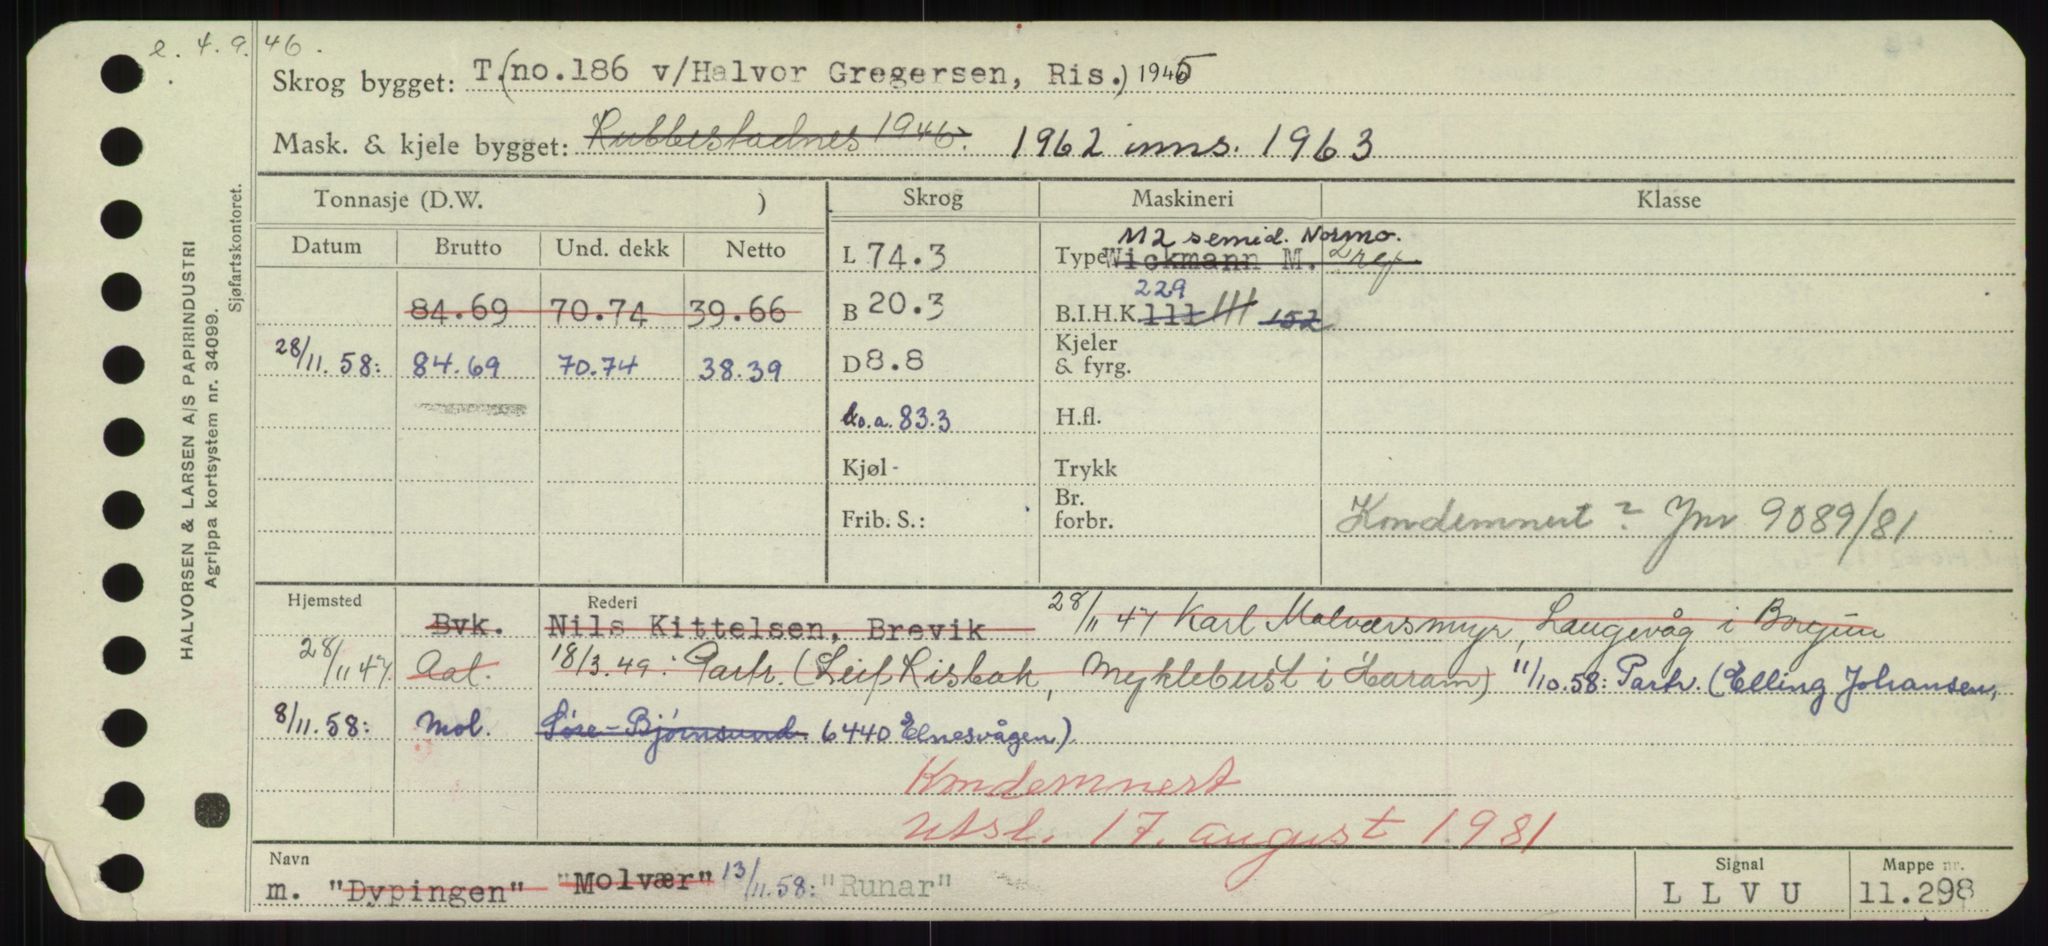 e. 4.9.46.
Skrog bygget: T.(no.186 v/Halvor Gregersen, Ris.) 1945
Mask. & kjele bygget: Rubbestadnes 1946. 1962 inns. 1963
Tonnasje (D.W. ) Skrog Maskineri Klasse
Datum Brutto Und. dekk Netto
L 74.3 Type Wickmann M. M2 semid. Normo.
84.69 70.74 39.66 B 20.3 B.I.H.K. 111 229 111 152
28/11.58: 84.69 70.74 38.39 D 8.8 Kjeler & fyrg.
Lo.a. 83.3 H.fl.
Kjøl - Trykk
Frib. S.: Br. forbr. Kondemnert ? Jnr 9089/81
Hjemsted Rederi
Bvk. Nils Kittelsen, Brevik 28/11 47 Karl Molværsmyr, Langevåg i Borgun
28/11 47. Aal. 18/3.49: Partr. (Leif Risbak, Myklebust i Haram) 11/10.58: Partr. (Elling Johansen,
8/11.58: Mol. Søre-Bjørnsund. 6440 Elnesvågen)
Kondemnert
utsl. 17. august 1981
Navn Signal Mappe nr.
m. "Dypingen" "Molvær" 13/11.58: "Runar" L L V U 11.298
HALVORSEN & LARSEN A/S PAPIRINDUSTRI
Agrippa kortsystem nr. 34099.
Sjøfartskontoret.